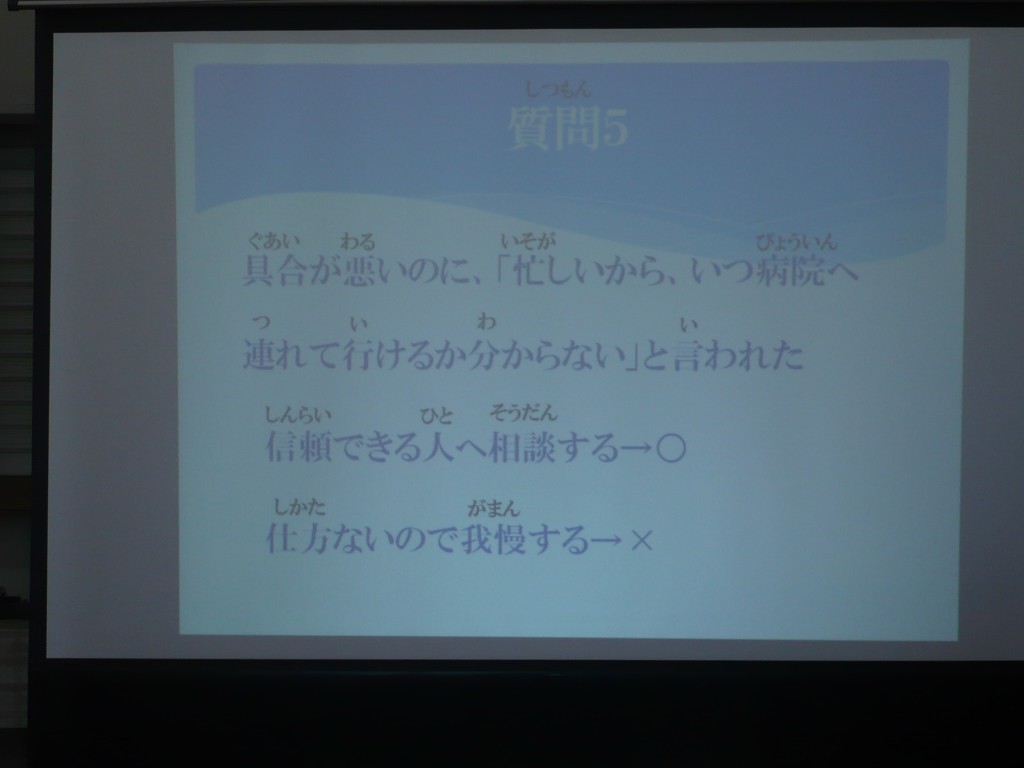 しつもん
質問5
ぐあい わる いそが びょういん
具合が悪いのに、「忙しいから、いつ病院へ
つ い わ い
連れて行けるか分からない」と言われた
しんらい ひと そうだん
信頼できる人へ相談する→○
しかた がまん
仕方ないので我慢する→×